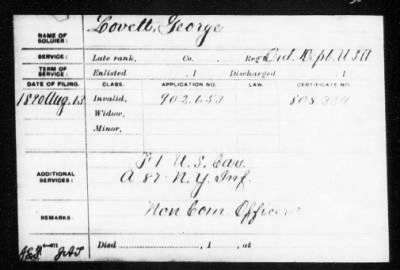 NAME OF SOLDIER: Lovett, George
SERVICE: Late rank, Co. Reg't Ord. Dep't. U.S.A
TERM OF SERVICE: Enlisted , 1 Discharged , 1
DATE OF FILING. CLASS. APPLICATION NO. LAW. CERTIFICATE NO.
1890 Aug. 13 Invalid, 902.653
Widow,
Minor,
ADDITIONAL SERVICES: F 1 U.S. Cav.
A 87 N.Y. Inf.
REMARKS: Non Com Officer
Died , 1 , at